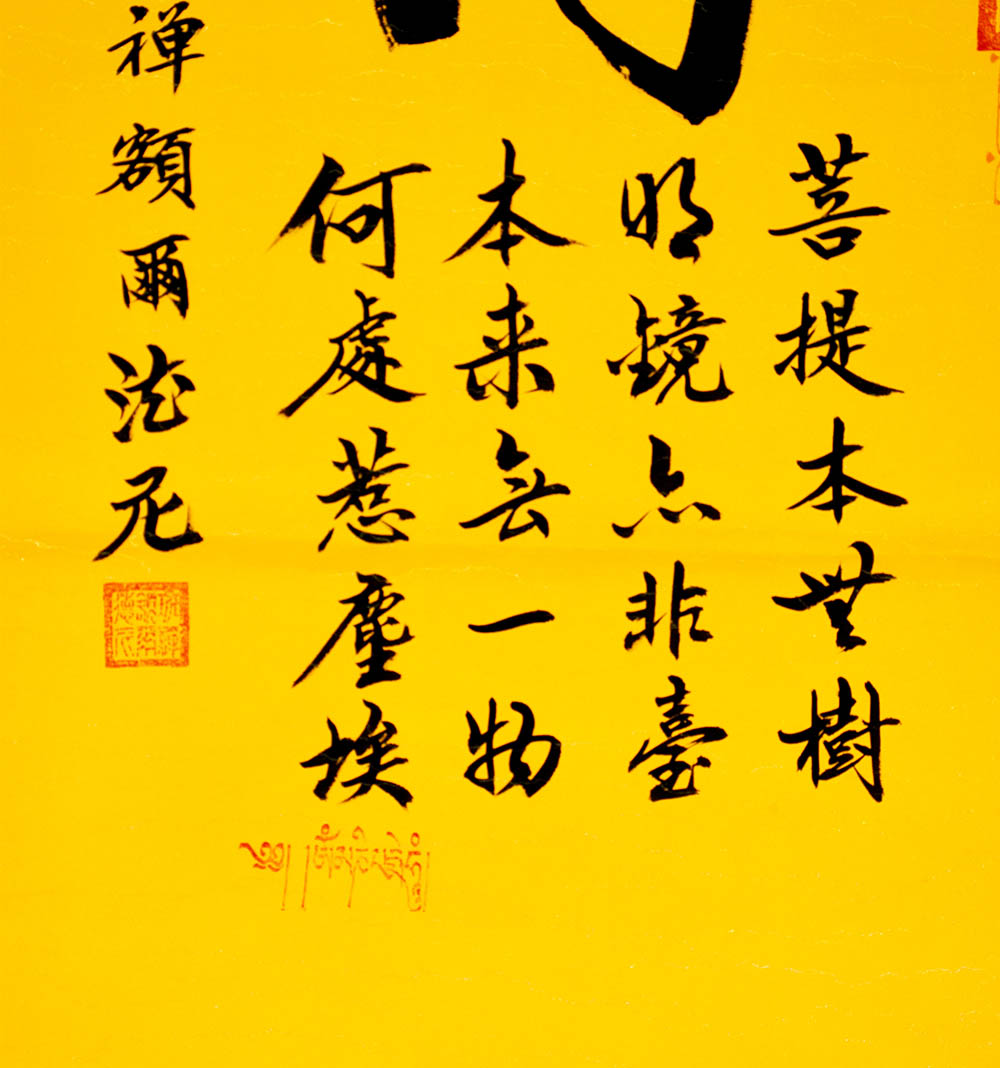 菩提本無樹
明鏡亦非臺
本来無一物
何處惹塵埃
禅額爾德尼
༄༅། །ཨོཾ་མ་ཎི་པདྨེ་ཧཱུྃ།